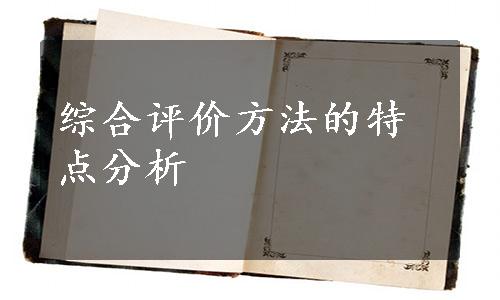 综合评价方法的特
点分析